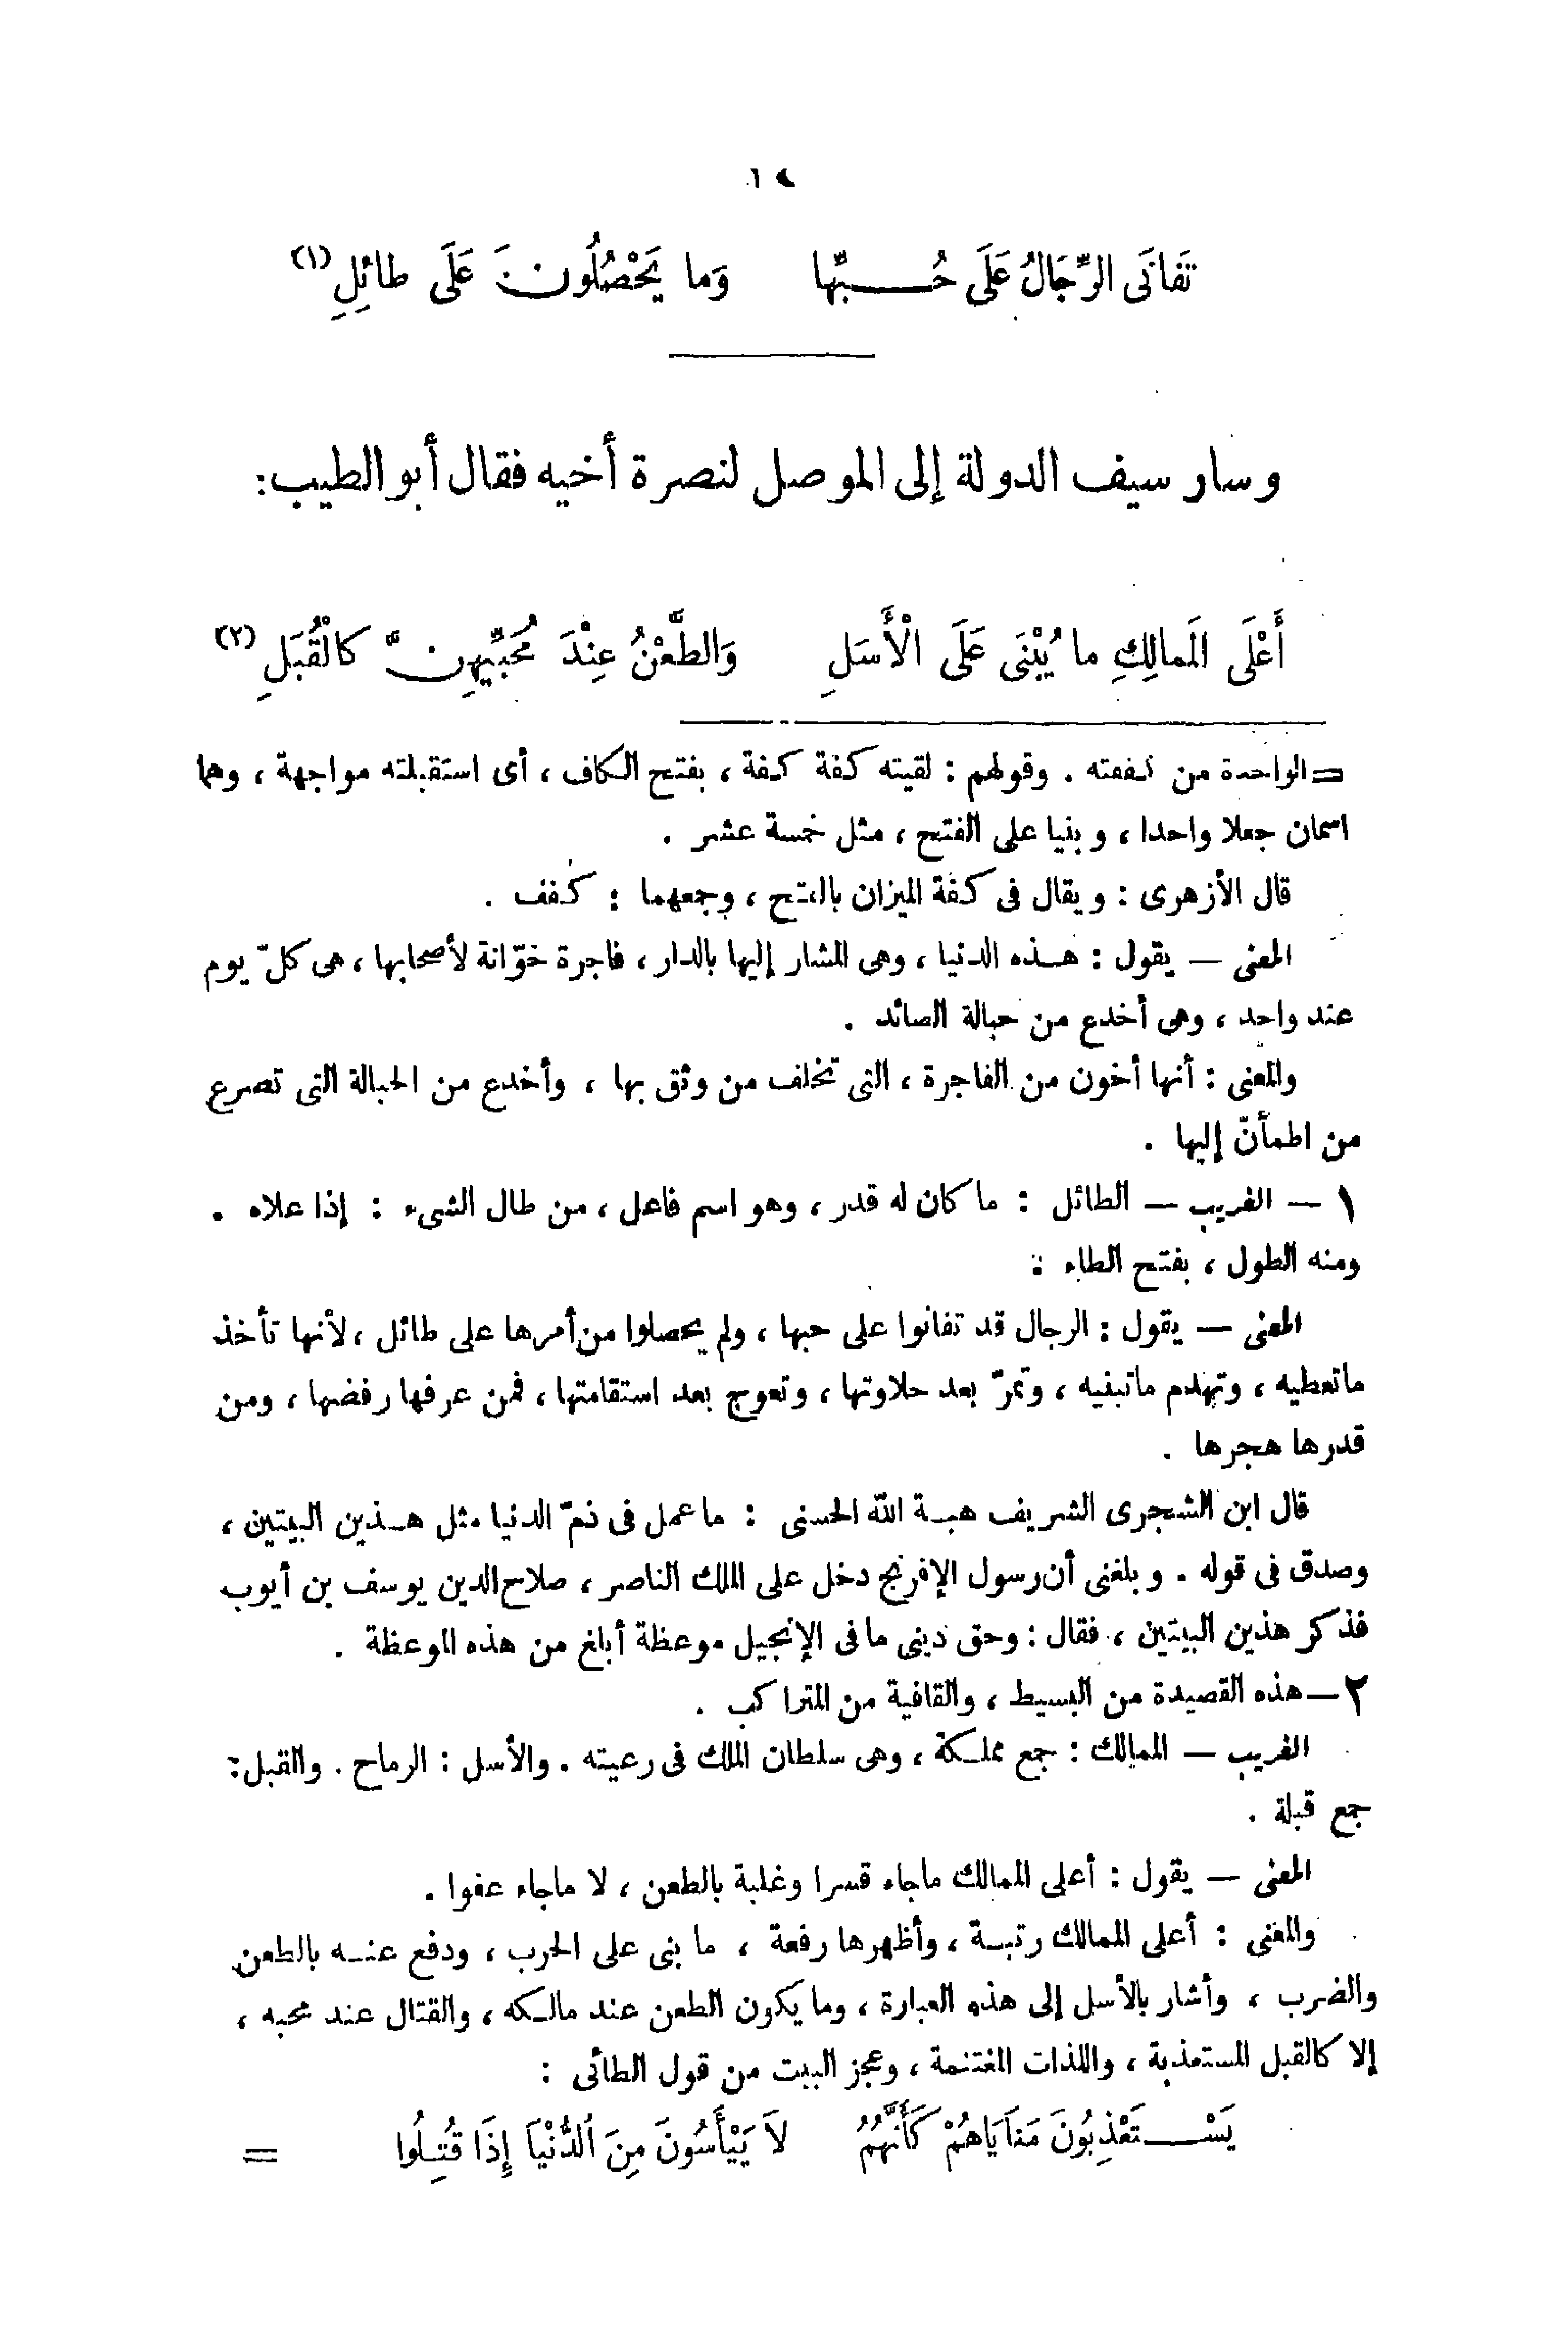 تَفَانَى الرِّجَالُ عَلَى حُبِّها وَما يَحْصُلُونَ عَلَى طائِلِ (١)
وسار سيف الدولة إلى الموصل لنصرة أخيه فقال أبو الطيب:
أَعْلَى المَمالِكِ ما يُبْنَى عَلَى الْأَسَلِ وَالطَّعْنُ عِنْدَ مُحَبِّيهِنَّ كالْقُبَلِ (٢)
= الواحدة من كففته . وقولهم : لقيته كفة كفة ، بفتح الكاف ، أى استقبلته مواجهة ، وهما
اسمان جعلا واحدا ، وبنيا على الفتح ، مثل خمسة عشر .
قال الأزهرى : ويقال فى كفة الميزان بالفتح ، وجمعهما : كفف .
المعنى — يقول : هذه الدنيا ، وهى المشار إليها بالدار ، فاجرة خوّانة لأصحابها ، هى كلّ يوم
عند واحد ، وهى أخدع من حبالة الصائد .
والمعنى : أنها أخون من الفاجرة ، التى تخلف من وثق بها ، وأخدع من الحبالة التى تصرع
من اطمأنّ إليها .
١ — الغريب — الطائل : ما كان له قدر ، وهو اسم فاعل ، من طال الشىء : إذا علاه .
ومنه الطول ، بفتح الطاء :
المعنى — يقول : الرجال قد تفانوا على حبها ، ولم يحصلوا من أمرها على طائل ، لأنها تأخذ
ماتعطيه ، وتهدم ماتبنيه ، وتمرّ بعد حلاوتها ، وتعوج بعد استقامتها ، فمن عرفها رفضها ، ومن
قدرها هجرها .
قال ابن الشجرى الشريف هبة الله الحسنى : ما عمل فى ذمّ الدنيا مثل هذين البيتين ،
وصدق فى قوله . وبلغنى أن رسول الإفرنج دخل على الملك الناصر ، صلاح الدين يوسف بن أيوب
فذكر هذين البيتين ، فقال : وحق دينى ما فى الإنجيل موعظة أبلغ من هذه الموعظة .
٢ — هذه القصيدة من البسيط ، والقافية من المتراكب .
الغريب — الممالك : جمع مملكة ، وهى سلطان الملك فى رعيته . والأسل : الرماح . والقبل :
جمع قبلة .
المعنى — يقول : أعلى الممالك ماجاء قسرا وغلبة بالطعن ، لا ماجاء عفوا .
والمعنى : أعلى الممالك رتبة ، وأظهرها رفعة ، ما بنى على الحرب ، ودفع عنه بالطعن
والضرب ، وأشار بالأسل إلى هذه العبارة ، وما يكون الطعن عند مالكه ، والقتال عند محبه ،
إلا كالقبل المستعذبة ، واللذات المغتنمة ، وعجز البيت من قول الطائى :
يَسْتَعْذِبُونَ مَنَايَاهُمْ كَأَنَّهُمُ لاَ يَيْأَسُونَ مِنَ الدُّنْيَا إِذَا قُتِلُوا =